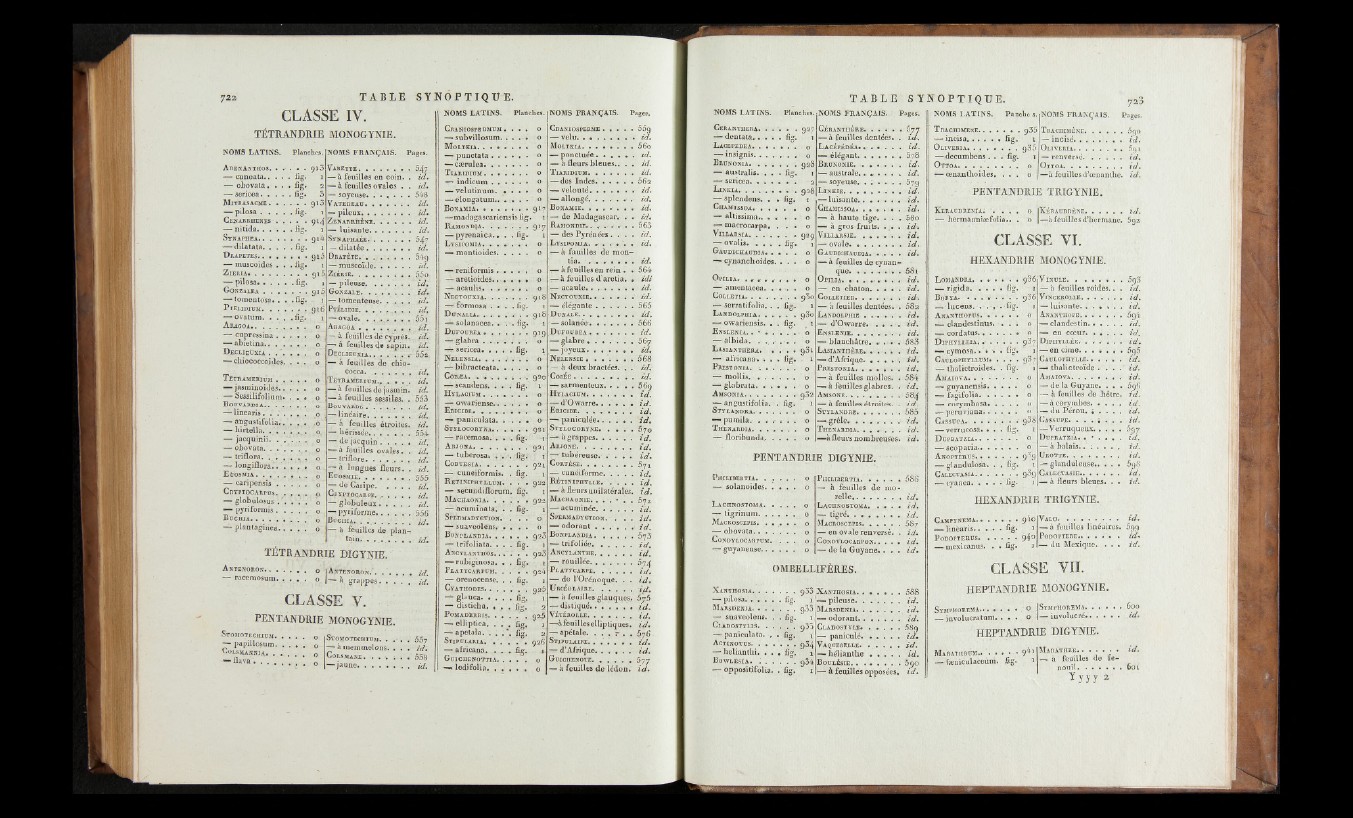 722 TABLE SYNOPTIQUE.
CLASSE IV.
TÉTRANDRIE MONOGYNIE.
NOMS LATINS. Planches. NOMS FRANÇAIS. Pages.
ADENANTHOS. 913 VARÉTTE. 547
— cuneata. fig. 1 — à feuilles en coin. id.
— obovata. fig. 2 — à feuilles ovales. id.
— sericea. fig. 3 — soyeuse. 548
MITRASACME. 913 VATEREAU. id.
— pilosa. fig. 1 — pileux. id.
CENARRHENES 914 ZÉNARRHÈNE. id.
— nitida. fig. 1 — luisante. id.
SYNAPHEA. 914 SYNAPHAEE. 547
— dilatata. fig. 1 — dilatée. id.
DRAPETES. 915 DRAPÈTE. 549
— muscoides fig. — muscoïde. id.
ZIERIA. 915 ZIÉRIE. 550
— pilosa. fig. 1 — pileuse. id.
GONZALEA 915 GONZALE. id.
— tomentosa. fig. 1 — tomenteuse. id.
PTELIDIUM. 916 PTÉLIDIE. id.
— ovatum. fig. 1 — ovale. 551
ARAGOA. 0 ARAGOA. id.
— cupressina 0 — à feuilles de cyprès. id.
— abietina. 0 — à feuilles de sapin. id.
DECLIEUXIA 0 DECLIEUXIA. 552
— chiococcoides. 0 — à feuilles de chiococca. id.
TETRAMERIUM 0 TETRAMERIUM. id.
— jasminoides. 0 — à feuilles de jasmin. id.
— Sessilifolium. 0 — à feuilles sessiles. 553
BOUVARDIA. 0 BOUVARDE. id.
— linearis. 0 — linéaire. id.
— angustifolia. 0 — à feuilles étroites. id.
— hirtella. 0 — hérissée. 554
— jacquinii. 0 — de jacquin. id.
— obovata. 0 — à feuilles ovales. id.
— triflora. 0 — triflore. id.
— longiflora. 0 — à longues fleurs. id.
EUOSMIA. 0 EUOSMIE. 555
— caripensis 0 — de Caripe. id.
CRYPTOCARPUS. 0 CRYPTOCARPE. id.
— globulosus 0 — globuleux. id.
— pyriformis 0 — pyriforme. 556
BUCHIA. 0 BUCHIA. id.
— plantaginea. 0 — à feuilles de plantain. id.
TÉTRANDRIE DIGYNIE.
ANTENORON. 0 ANTENORON. id.
— racemosum. 0 — à grappes. id.
CLASSE V.
PENTANDRIE MONOGYNIE.
STOMOTECHIUM. 0 STOMOTECHIUM. 557
— papillosum. 0 — à memmelons. id.
COLSMANNIA. 0 COLSMANE. 558
— flava. 0 — jaune. id.
NOMS LATINS. Planches. NOMS FRANÇAIS. Pages.
CRANIOSPERMUM. 0 CRANIOSPERME. 559
— subvillosum. 0 — velu. id.
MOLTKIA. 0 MOLTKIA. 560
— punctata 0 — ponctuée id.
— cærulea. 0 — à fleurs bleues. id.
TIARIDIUM. 0 TIARIDIUM. id.
— indicum 0 — des Indes. 562
— velutinum. 0 — velouté. id.
— elongatum. 0 — allongé. id.
BONAMIA. 917 BONAMIE. id.
— madagascariensis fig. 1 — de Madagascar. id.
RAMONDIA. 917 RAMONDIE. 563
— pyrenaica. fig. 1 — des Pyrénées. id.
LYSIPOMIA. 0 LYSIPOMIA. id.
— montioides. 0 — à feuilles de montia. id.
— reniformis 0 — à feuilles en rein. 564
— aretioides. 0 — à feuilles d'aretia. id.
— acaulis. 0 — acaule. id.
NECTOUXIA. 918 NECTOUXIE. id.
— formosa. fig. 1 — élégante 565
DUNALIA. 918 DUNALE. id.
— solanacea. fig. 1 — solanée. 566
DUFOUREA 919 DUFOUREA id.
— glabra 0 — glabre 567
— sericea. fig. 1 — joyeux. id.
NELENSIA. 0 NELENSIE 568
— bibracteata. 0 — à deux bractées. id.
COBÆA. 920 COBÉE id.
— scandens. fig. 1 — sarmenteux. 569
HYLACIUM. 0 HYLACIUM. id.
— owariense. 0 — d'Owarre. id.
ERICIDE. 0 ERICIDE. id.
— paniculata. 0 — paniculée. id.
STYLOCORYNA. 921 STYLOCORYNE. 570
— racemosa. fig. 1 — à grappes. id.
ARJONA. 921 ARJONE. id.
— tuberosa. fig. 1 — tubéreuse. id.
CORTESIA. 921 CORTÉSE. 571
— cuneiformis. fig. — cunéiforme. id.
RETINIPHYLLUM. 922 RÉTINIPHYLLE. id.
— secundiflorum. fig. 1 — à fleurs unilatérales. id.
MACHAONIA. 922 MACHAONIE. 572
— acuminata. fig. 1 — acuminée. id.
SPERMADYCTION. 0 SPERMADYCTION. id.
— suaveolens. 0 — odorant id.
BONPLANDIA. 923 BONPLANDIA 573
— trifoliata. fig. 1 — trifoliée. id.
ANCYLANTHOS. 923 ANCYLANTHE. id.
— rubiginosa. fig. 1 — rouillée. 574
PLATYCARPUM. 924 PLATYCARPE. id.
— orenocense. fig. 1 — de l'Orénoque. id.
CYATHODES. 925 URCÉOLAIRE. id.
— glauca. fig. 1 — à feuilles glauques. 575
— disticha. fig. 2 — distiqué. id.
POMADERRIS. 925 VÉTÉROLLE. id.
— elliptica. fig. 1 — à feuilles elliptiques. id.
— apetala. fig. 2 — apétale. 576
STIPULARIA. 926 STIPULAIRE. id.
— africana. fig. 1 — d'Afrique. id.
GUICHENOTTIA. 0 GUICHENOTE. 577
— ledifolia. 0 — à feuilles de lédon. id.
TABLE SYNOPTIQUE. 723
NOMS LATINS. Planches. NOMS FRANÇAIS. Pages.
GERANTHERA. 927 GÉRANTHÈRE. 577
— dentata. fig. 1 — à feuilles dentées. id.
LACEPEDEA. 0 LACÉPÉDÉA. id.
— insignis. 0 — élégant. 578
BRUNONIA. 928 BRUNONIE. id.
— australis. fig. 1 — australe. id.
— sericea. 2 — soyeuse. 579
LINKIA. 928 LINKIE. id.
— splendens. fig. 1 — luisante. id.
CHAMISSOA. 0 CHAMISSOA. id.
— altissima. 0 — à haute tige. 580
— macrocarpa. 0 — à gros fruits. id.
VILLARSIA. 929 VILLARSIE. id.
— ovalis. fig. 1 — ovale. id.
GAUDICHAUDIA. 0 GAUDICHAUDIA. id.
— cynanchoides. 0 — à feuilles de cynanque. 581
OPILIA. 0 OPILIA. id.
— amentacea. 0 — en chaton. id.
COLLETIA. 930 COLLETIER. id.
— serratifolia. fig. 1 — à feuilles dentées. 582
LANDOLPHIA. 930 LANDOLPHIE id.
— owariensis. fig. 1 — d'Owarre. id.
ENSLENIA. 0 ENSLÉNIE. id.
— albida. 0 — blanchâtre. 583
LASIANTHERA. 931 LASIANTHÈRE. id.
— africana. fig. 1 — d'Afrique. id.
PRESTONIA. 0 PRESTONIA. id.
— mollis. 0 — à feuilles molles. 584
— glabrata. 0 — à feuilles glabres. id.
AMSONIA. 932 AMSONE. 584
— angustifolia. fig. 1 — à feuilles étroites. id.
STYLANDRA. 0 STYLANDRE. 585
— pumila. 0 — grêle. id.
THENARDIA. 0 THENARDIA. id.
— floribunda. 0 — à fleurs nombreuses. id.
PENTANDRIE DIGYNIE.
PHILIBERTIA. 0 PHILIBERTIA. 586
— solanoides. 0 — à feuilles de morelle. id.
LACHNOSTOMA. 0 LACHNOSTOMA. id.
— tigrinum. 0 — tigré. id.
MACROSCEPIS. 0 MACROSCEPIS. 587
— obovata. 0 — en ovale renversé. id.
CONDYLOCARPUM. 0 CONDYLOCARPON. id.
— guyanense. 0 — de la Guyane. id.
OMBELLIFÈRES.
XANTHOSIA. 933 XANTHOSIA. 588
— pilosa. fig. 1 — pileuse. id.
MARSDENIA. 933 MARSDENIA. id.
— suaveolens. fig. 1 — odorant. id.
CLADOSTYLIS. 933 CLADOSTYLE. 589
— paniculata. fig. 1 — paniculé. id.
ACTINOTUS. 934 VAQUERELLE. id.
— helianthi. fig. 1 — hélianthe id.
BOWLESIA. 934 BOULÉSIE. 590
— oppositifolia. fig. 1 — à feuilles opposées. id.
NOMS LATINS. Planches. NOMS FRANÇAIS. Pages.
TRACHIMENE. 935 TRACHIMÈNE. 590
— incisa. fig. 1 — incisé. id.
OLIVERIA. 935 OLIVERIA. 591
— decumbens fig. 1 — renversé. id.
OTTOA. 0 OTTOA. id.
— œnanthoides. 0 — à feuilles d'œnanthe. id.
PENTANDRIE TRIGYNIE.
KERAUDRENIA 0 KÉRAUDRÈNE. id.
— hermaniæfolia. 0 — à feuilles d'hermane. 592
CLASSE VI.
HEXANDRIE MONOGYNIE.
LOMANDRA. 936 VINULE. 593
— rigida. fig. 1 — à feuilles roides. id.
BORYA. 936 VINCEROLLE. id.
— lucens. fig. 1 — luisante. id.
ANANTHOPUS. 0 ANANTHOPE. 594
— clandestinus. 0 — clandestin. id.
— cordatus. 0 — en cœur. id.
DIPHYLLEIA. 937 DIPHYLLÉE. id.
— cymosa. fig. 1 — en cime. 595
CAULOPHYLLUM. 937 CAULOPHYLLE. id.
— thalictroides. fig. 1 — thalictroïde id.
AMAIOVA. 0 AMAIOVA. id.
— guyanensis. 0 — de la Guyane. 596
— fagifolia. 0 — à feuilles de hêtre. id.
— corymbosa. 0 — à corymbes. id.
— peruviana. 0 — du Pérou. id.
CASSUPA. 938 CASSUPE. id.
— verrucosa. fig. 1 — Verruqueux. 597
DUPRATZIA. 0 DUPRATZIA. id.
— scoparia. 0 — à balais. id.
ANOPTERUS. 939 UROTTE. id.
— glandulosa. fig. 1 — glanduleuse. 598
CALECTASIA. 939 CALECTASIE. id.
— cyanea. fig. 1 — à fleurs bleues. id.
HEXANDRIE TRIGYNIE.
CAMPYNEMA. 940 VALO. id.
— linearis. fig. 1 — à feuilles linéaires. 599
PODOPTERUS. 940 PODOPTÈRE. id.
— mexicanus. fig. 2 — du Mexique. id.
CLASSE VII.
HEPTANDRIE MONOGYNIE.
SYMPHOREMA. 0 SYMPHOREMA. 600
— involucratum. 0 — involucré. id.
HEPTANDRIE DIGYNIE.
MAGATHRUM. MAGATHRE. id.
— fœniculaceum. fig. 1 — à feuilles de fenouil. 601
Yyyy 2